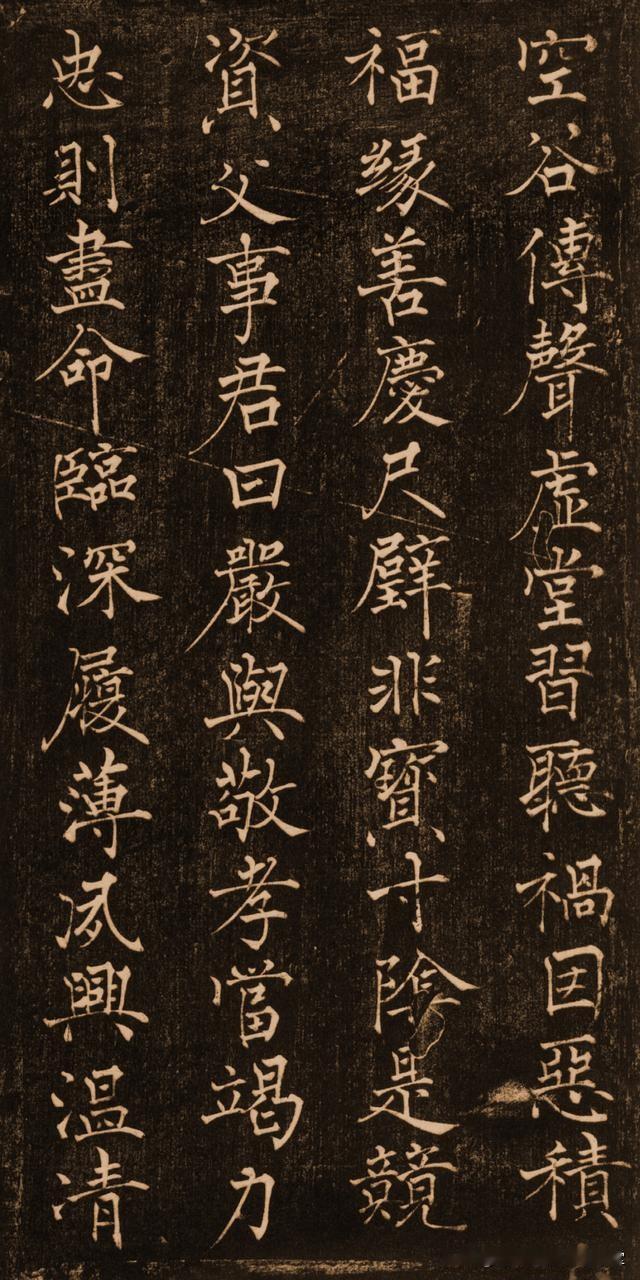 空谷傳聲虛堂習聽禍因惡積
福緣善慶尺璧非寶寸陰是競
資父事君曰嚴與敬孝當竭力
忠則盡命臨深履薄夙興温凊